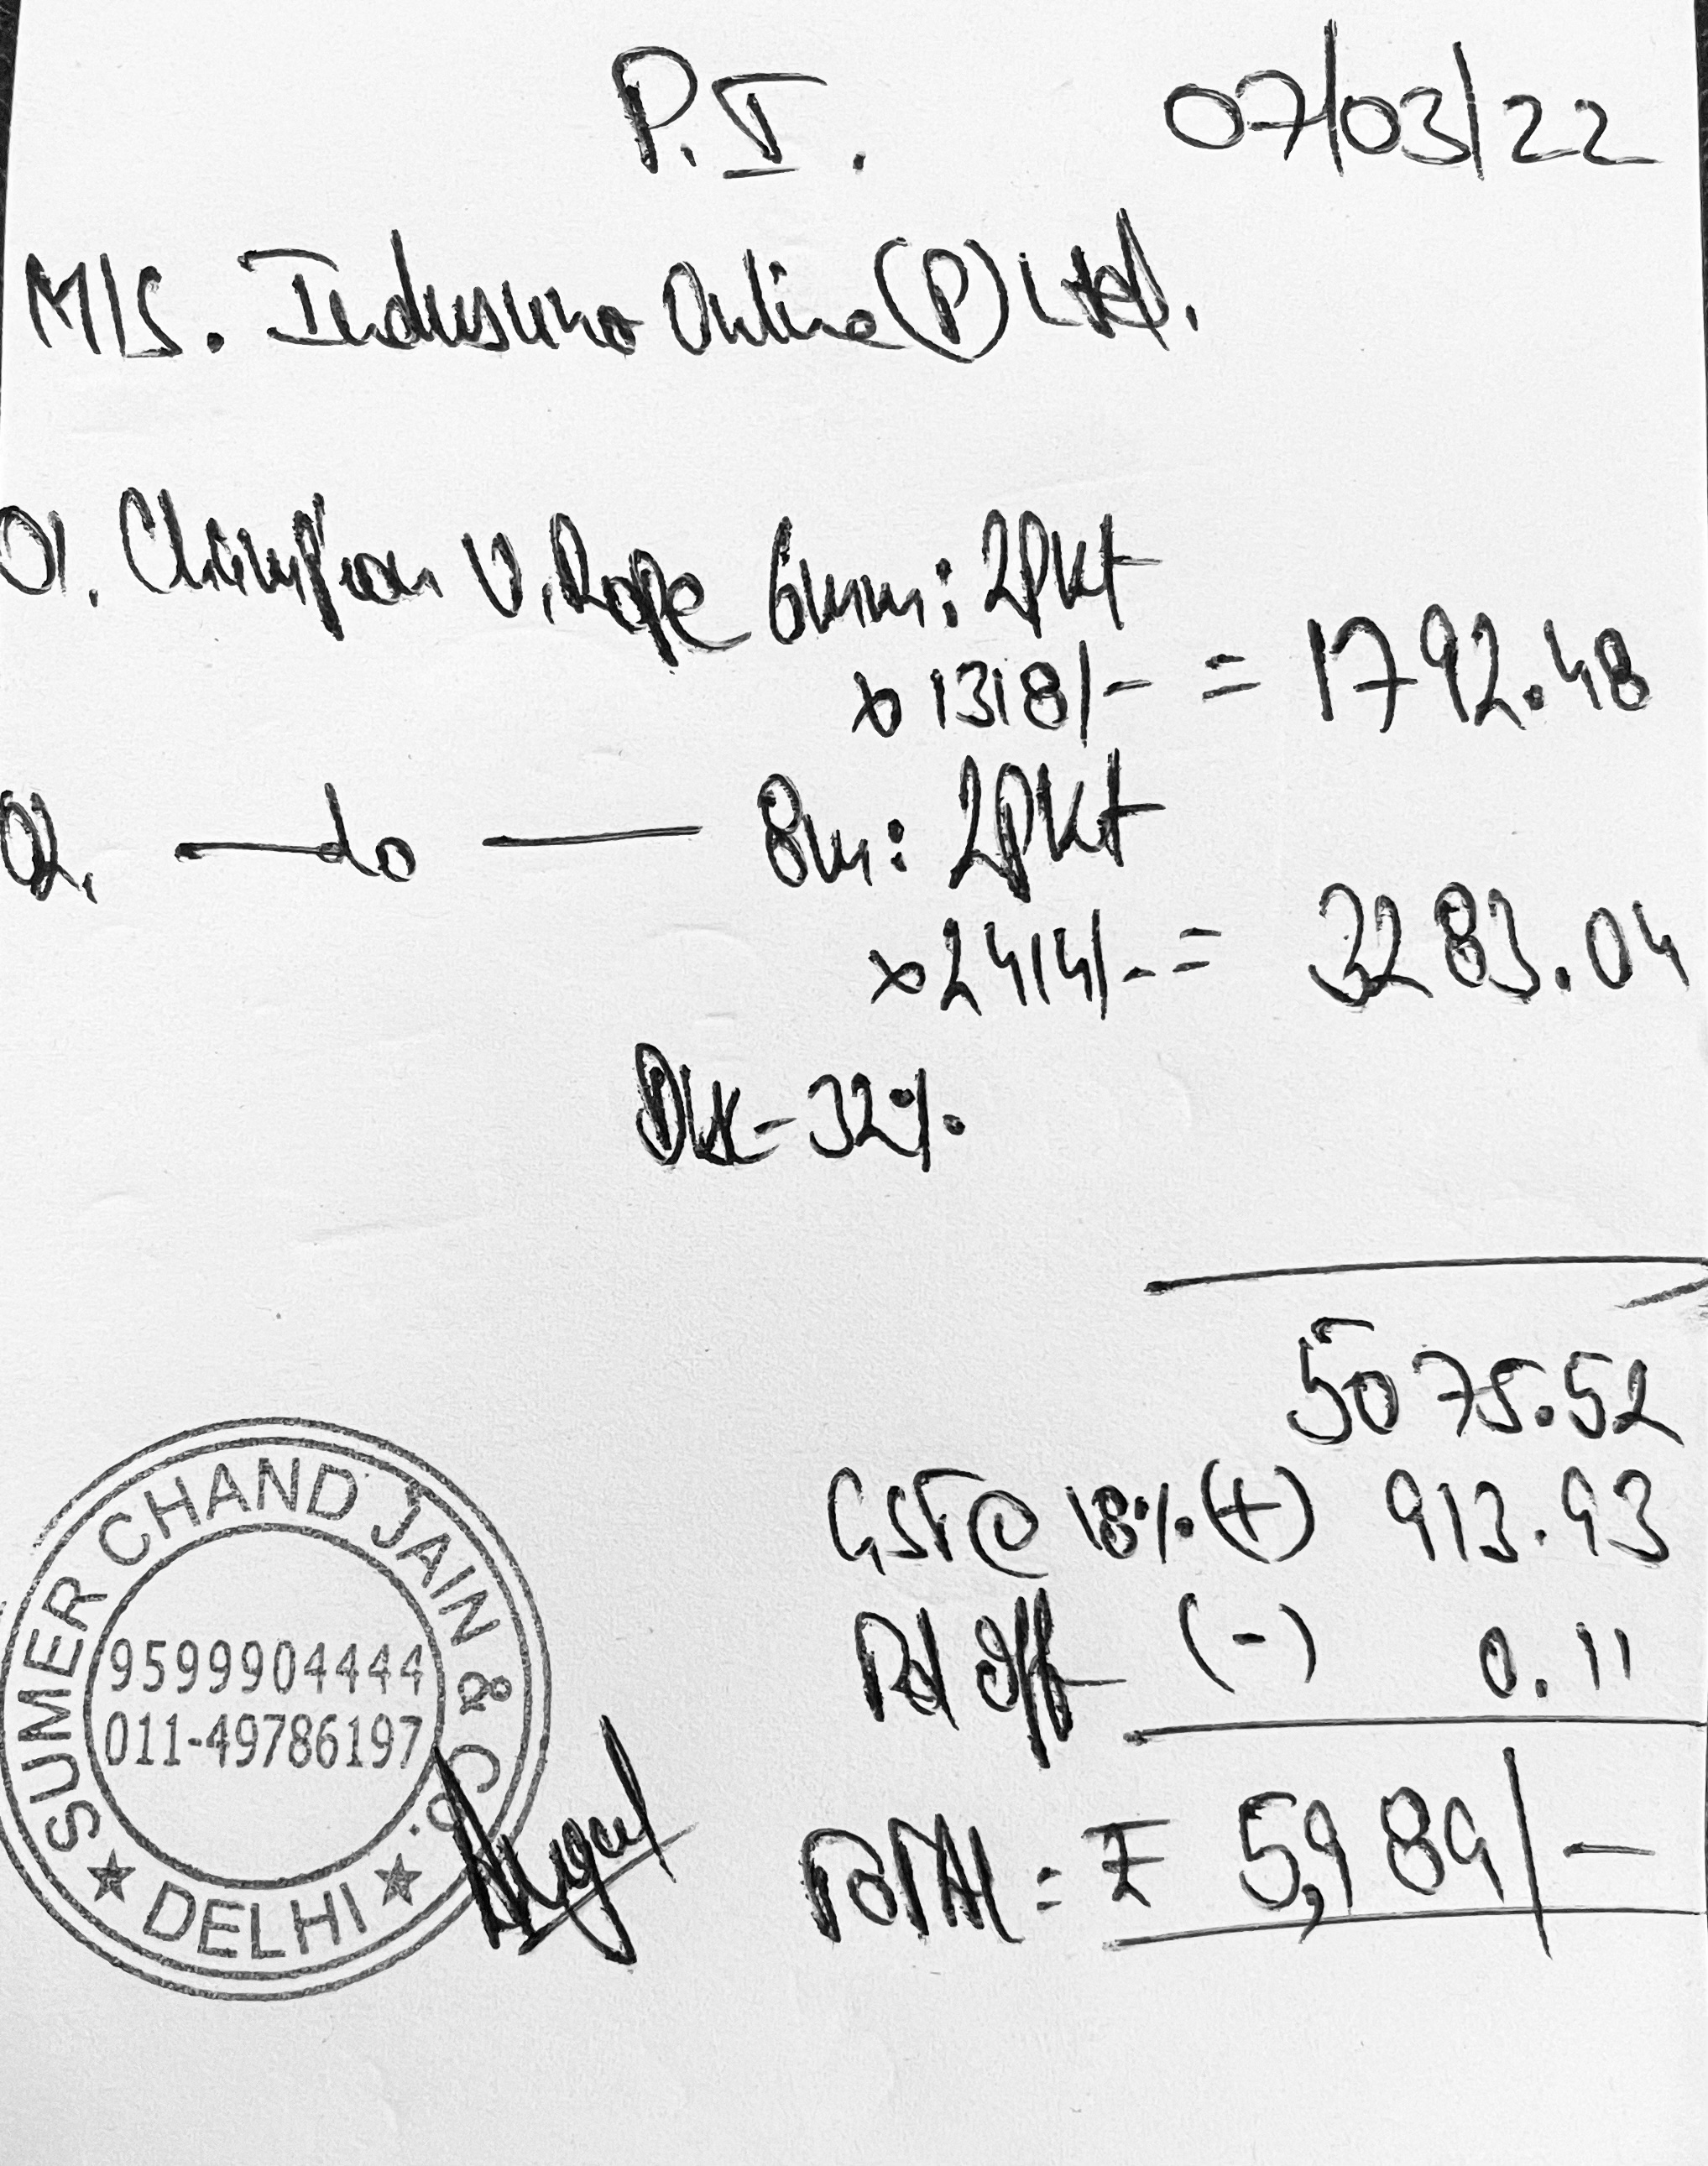 P.I. 07/03/22
M/S. Industino Online (P) Ltd.
01. Champion V.Rope 6mm: 2Pkt
x 1318/- = 1792.48
02. —do— 8m: 2Pkt
x 2414/- = 3283.04
- 32%
5075.52
GST@ 18% (+) 913.93
Rd Off (-) 0.11
TOTAL = ₹ 5,989/-
SUMER CHAND JAIN & CO.
9599904444
011-49786197
★ DELHI ★